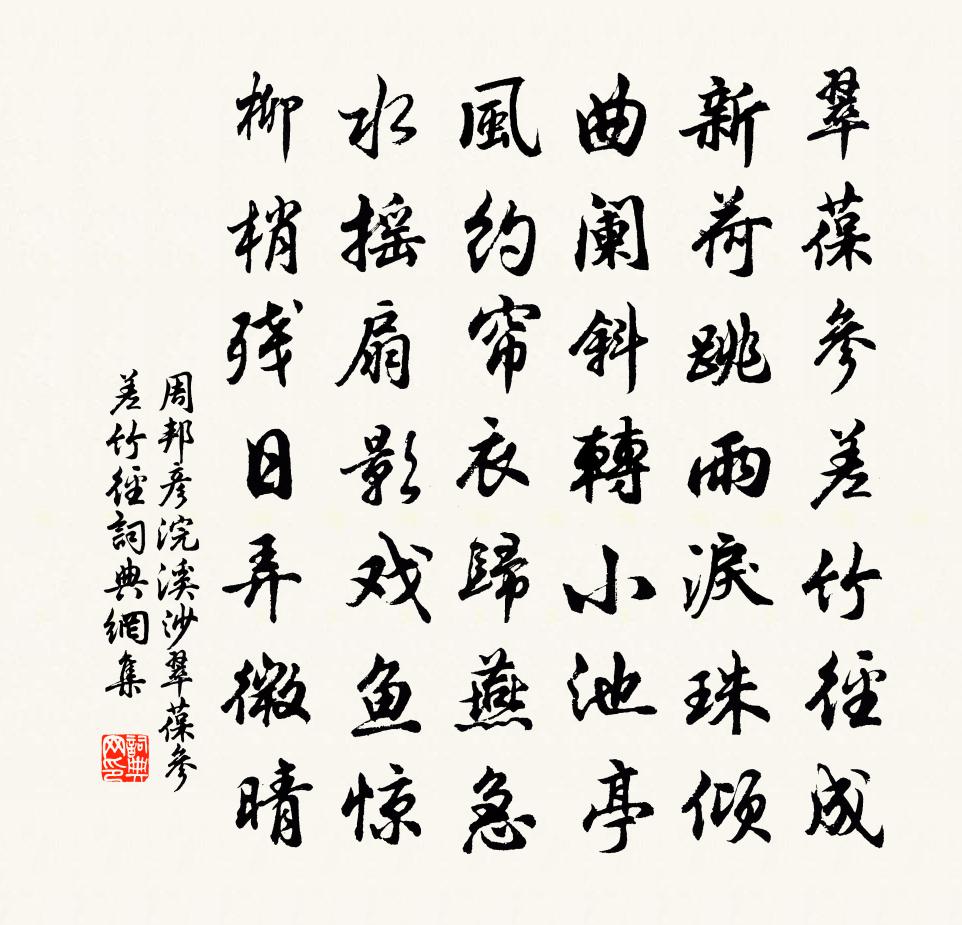 翠葆參差竹徑成
新荷跳雨淚珠傾
曲阑斜轉小池亭
風約帘衣歸燕急
水摇扇影戏鱼惊
柳梢残日弄微晴
周邦彦浣溪沙翠葆參
差竹徑詞典網集
詞典網印